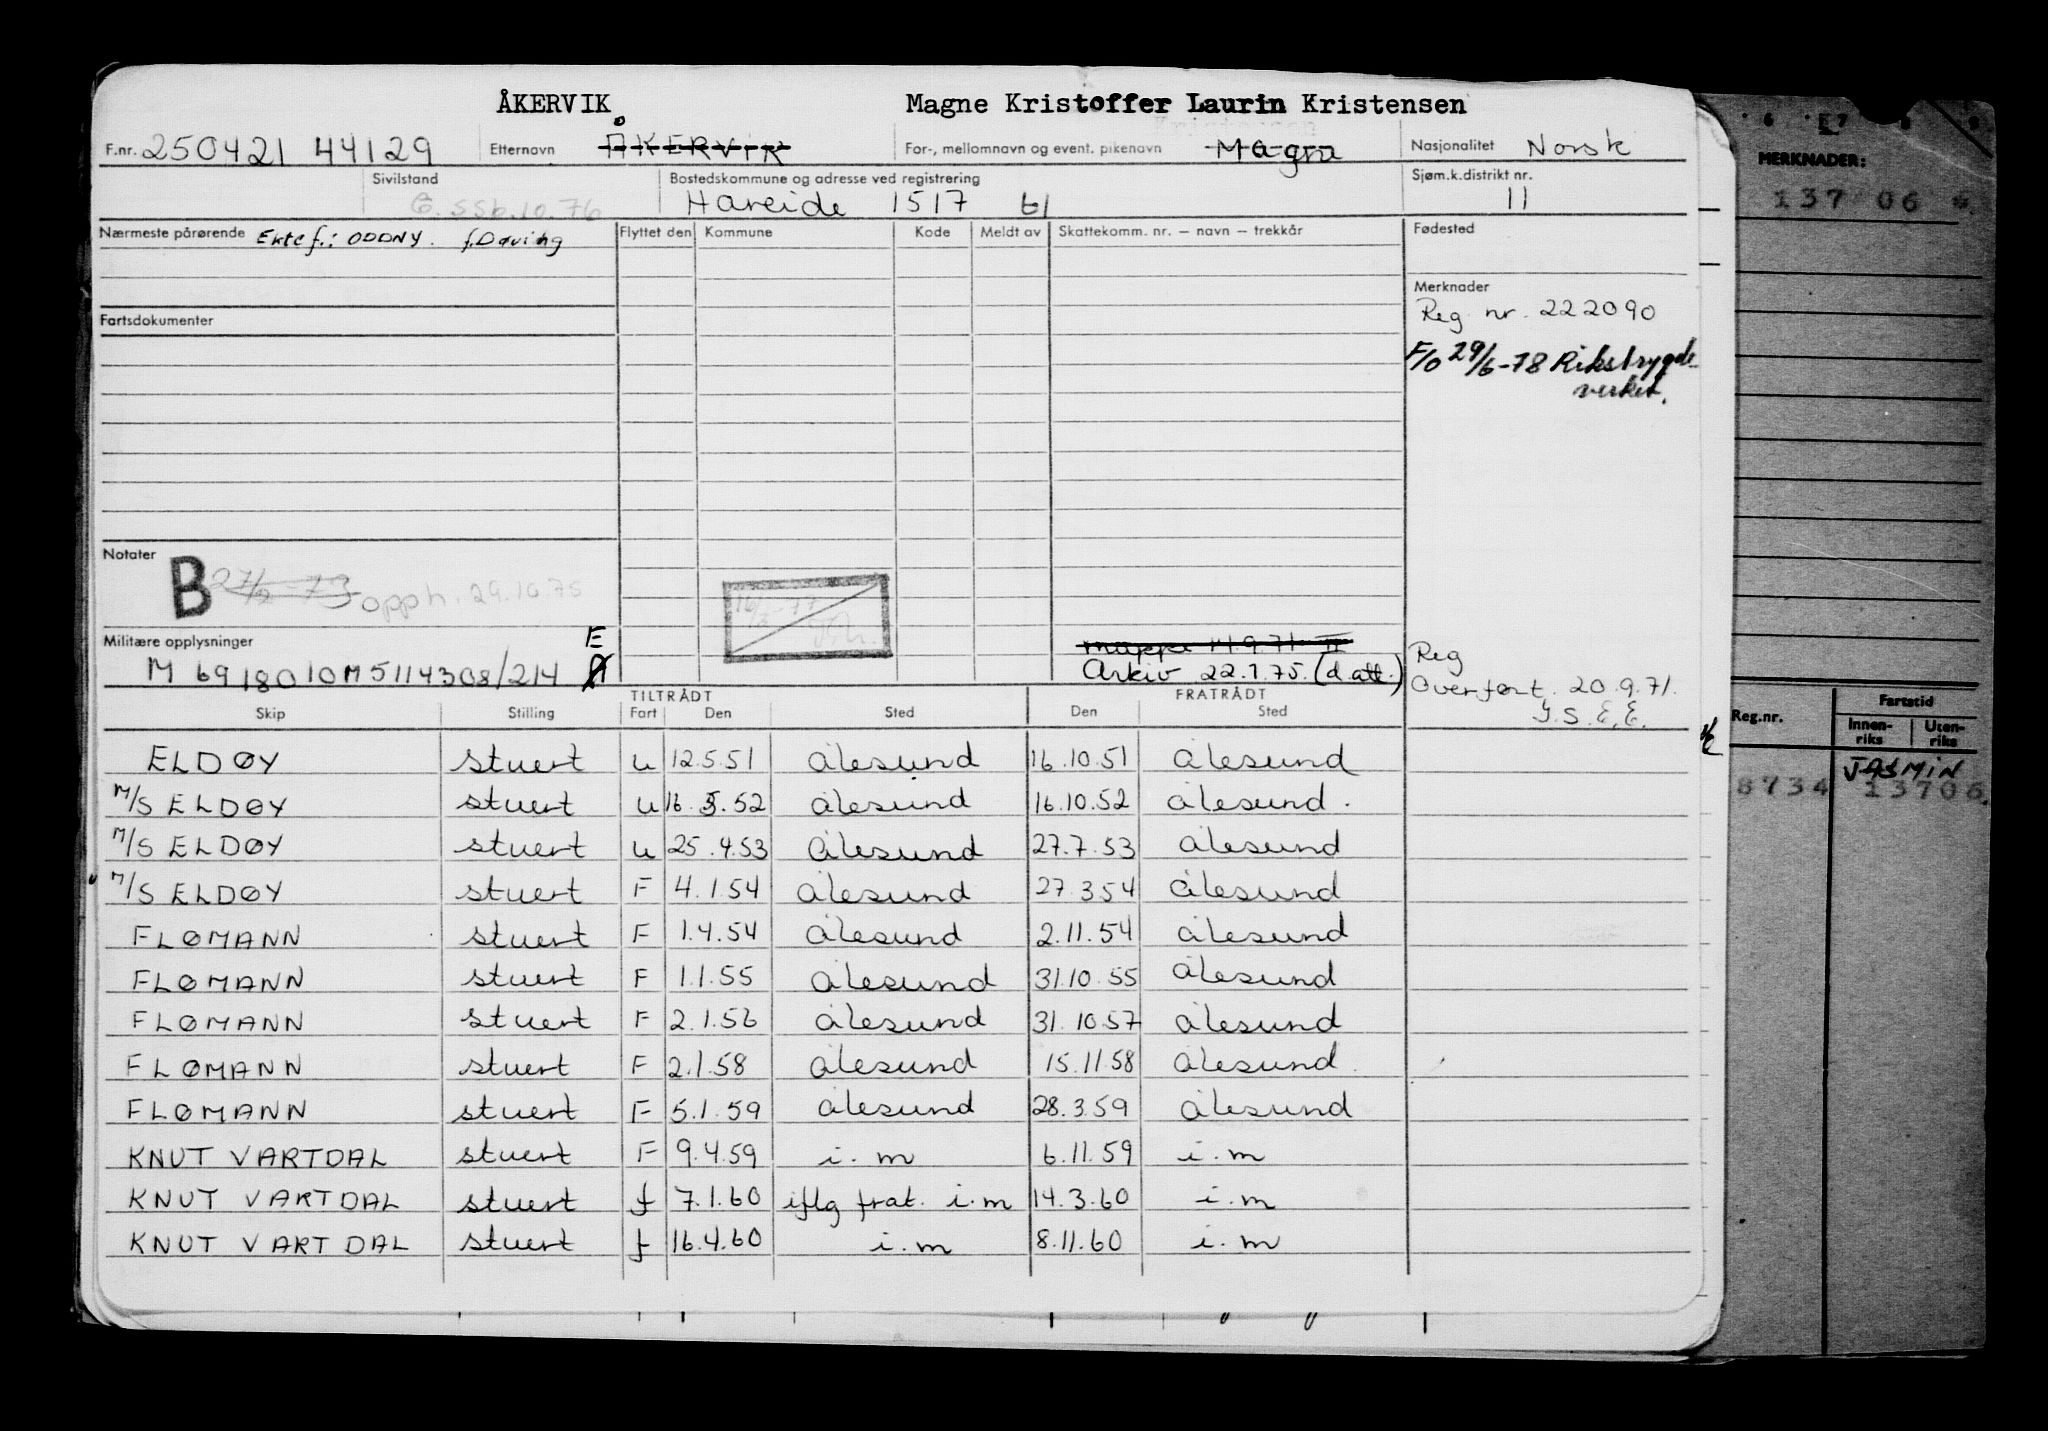 ÅKERVIK Magne Kristoffer Laurin Kristensen
F.nr. 250421 44129 Etternavn ÅKERVIK For-, mellomnavn og event. pikenavn Magna Nasjonalitet Norsk
Sivilstand G. SSb.10.76 Bostedskommune og adresse ved registrering Hareide 1517 61 Sjøm.k.distrikt nr. 11
Nærmeste pårørende Ektef.: ODDNY. f. Flyttet den Kommune Kode Meldt av Skattekomm. nr. – navn – trekkår Fødested
Merknader
Reg nr. 222090
Fartsdokumenter
F/O 29/6-78 Rikstrygde-
verket.
Notater
B 27/2-73 opph. 29.10.75
16/2-77
Militære opplysninger E
M 69 18010 M5114308/214 A
mappe 14.9.71. II
Arkiv 22.7.75. (d.att.)
Reg
Overført. 20.9.71.
TILTRÅDT FRATRÅDT
Skip Stilling Fart Den Sted Den Sted
ELDØY stuert u 12.5.51 ålesund 16.10.51 ålesund
M/S ELDØY stuert u 16.3.52 ålesund 16.10.52 ålesund.
M/S ELDØY stuert u 25.4.53 ålesund 27.7.53 ålesund
M/S ELDØY stuert F 4.1.54 ålesund 27.3.54 ålesund
FLØMANN stuert F 1.4.54 ålesund 2.11.54 ålesund
FLØMANN stuert F 1.1.55 ålesund 31.10.55 ålesund
FLØMANN stuert F 2.1.56 ålesund 31.10.57 ålesund
FLØMANN stuert F 2.1.58 ålesund 15.11.58 ålesund
FLØMANN stuert F 5.1.59 ålesund 28.3.59 ålesund
KNUT VARTDAL stuert F 9.4.59 i.m 6.11.59 i.m
KNUT VARTDAL stuert f 7.1.60 iflg frat. i.m 14.3.60 i.m
KNUT VARTDAL stuert f 16.4.60 i.m 8.11.60 i.m
6 7 8 9
MERKNADER:
137 06
Reg.nr. Fartstid
Innen-riks Uten-riks
JASMIN
8734 13706.